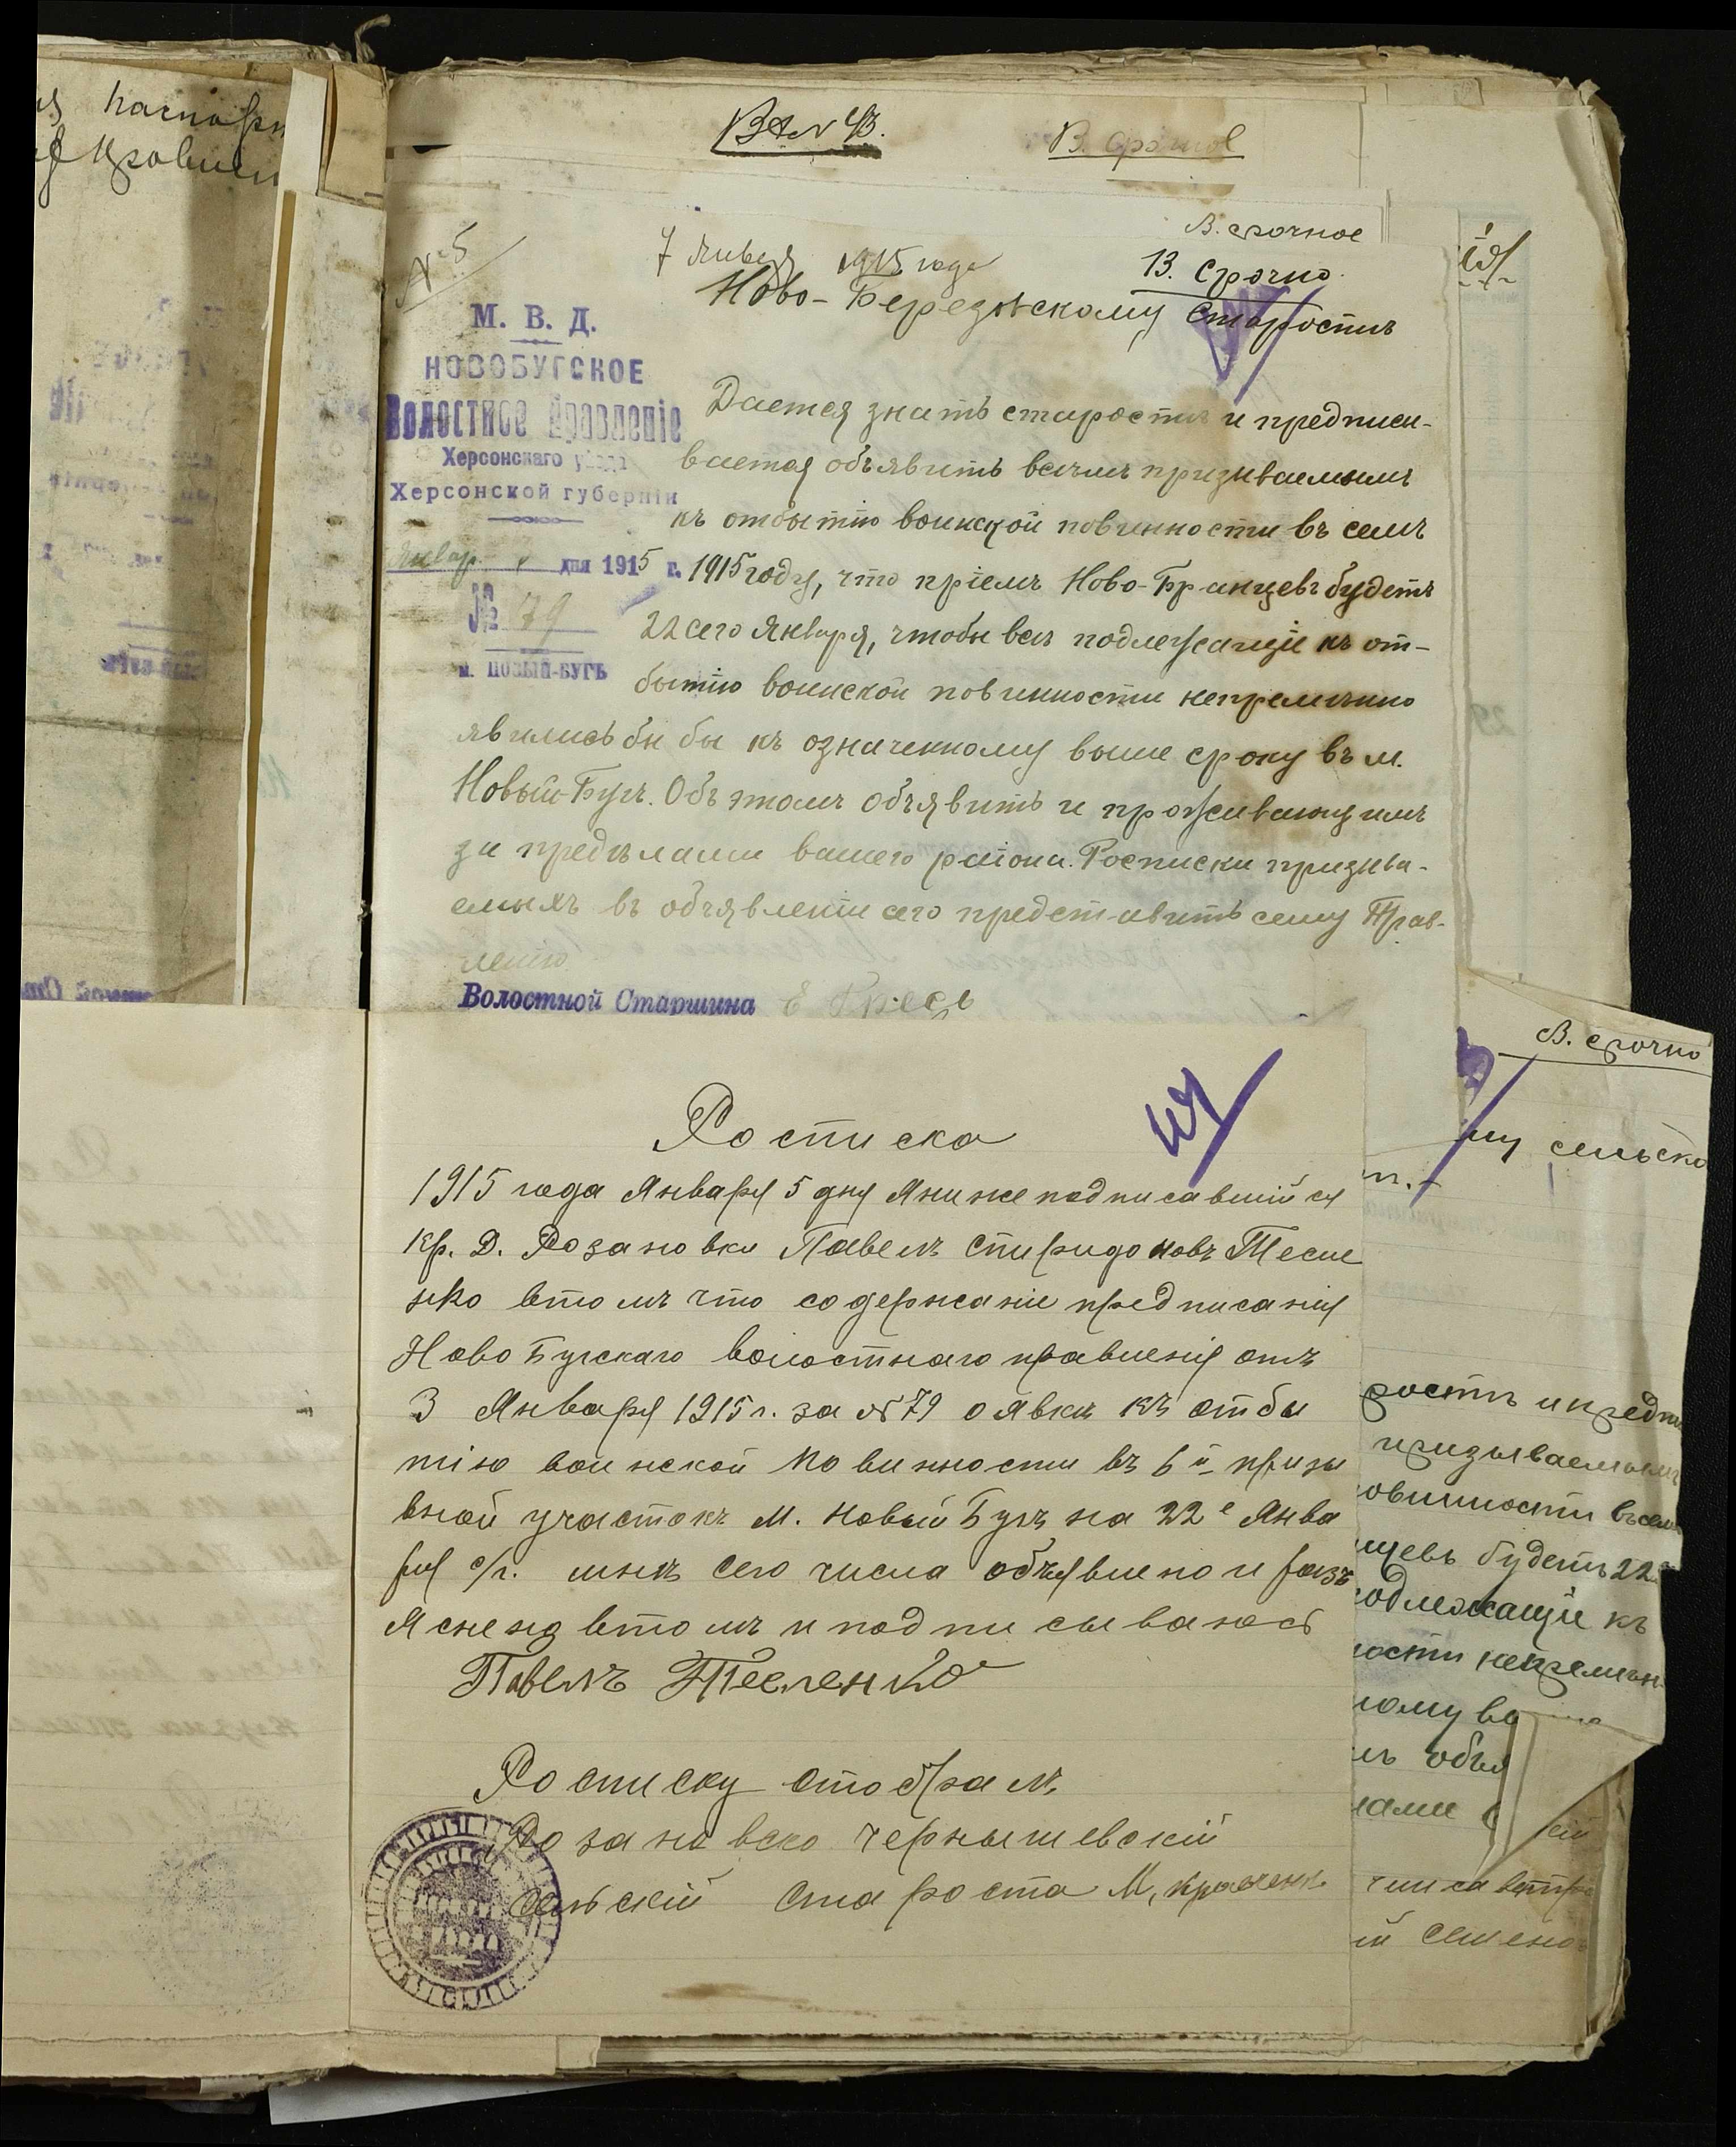 В. срочное
№ 5
7 Января 1915 года
В. Срочно
Ново-Березовскому Старостѣ
М. В. Д.
НОВОБУГСКОЕ
Волостное Правленіе
Херсонскаго уѣзда
Херсонской губерніи
Январ. дня 1915 г.
№ 79
м. НОВЫЙ-БУГЪ
Дается знать старостѣ и предписы-
вается объявить всѣмъ призываемымъ
къ отбытію воинской повинности въ семъ
1915 году, что пріемъ Ново-Бранцевъ будетъ
22 сего Января, чтобы всѣ подлежащіе къ от-
бытію воинской повинности непремѣнно
явились бы бы къ означенному выше сроку въ м.
Новый-Бугъ. Объ этомъ объявить и проживающимъ
за предѣлами вашего района. Росписки призыва-
емыхъ въ объявленіи сего представить сему Прав-
ленію
Волостной Старшина
Росписка
1915 года Января 5 дня Я ниже подписавшійся
кр. Д. Розановки Павелъ Спиридоновъ Тесле
нко втомъ что содержаніе предписанія
Ново Бугскаго волостнаго правленія отъ
3 Января 1915 г. за № 79 о явкѣ къ отбы
тію воинской повинности въ 6й призы
вной участокъ М. Новый Бугъ на 22е Янва
ря с/г. мнѣ сего числа объявлено и разъ
яснено втомъ и подписываюсь
Павелъ Тесленко
Росписку отобралъ
Розановско Чернышевскій
Сельскій Староста М,
В. срочно
му сельско
рость и предпи
призываемымъ
овинности въ семъ
нцевъ будетъ 22
подлежащіе къ
ности непремѣн
ному вы
мъ объя
лами